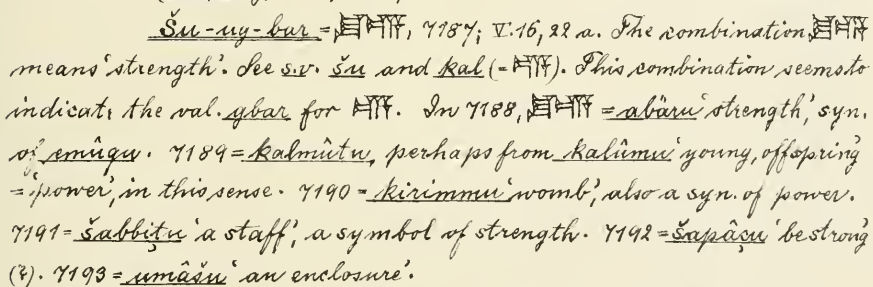 Šu-ug-bar = 𒋗𒆗, 7187; V. 16, 22 a. The combination 𒋗𒆗
means 'strength'. See s.v. šu and kal (= 𒆗). This combination seems to
indicate the val. gbar for 𒆗. In 7188, 𒋗𒆗 = abâru 'strength', syn.
of emûqu. 7189 = kalmûtu, perhaps from kalûmu 'young, offspring'
= 'power', in this sense. 7190 = kirimmu 'womb', also a syn. of power.
7191 = šabbiṭu 'a staff', a symbol of strength. 7192 = šapâçu 'be strong'
(?). 7193 = umâšu 'an enclosure'.